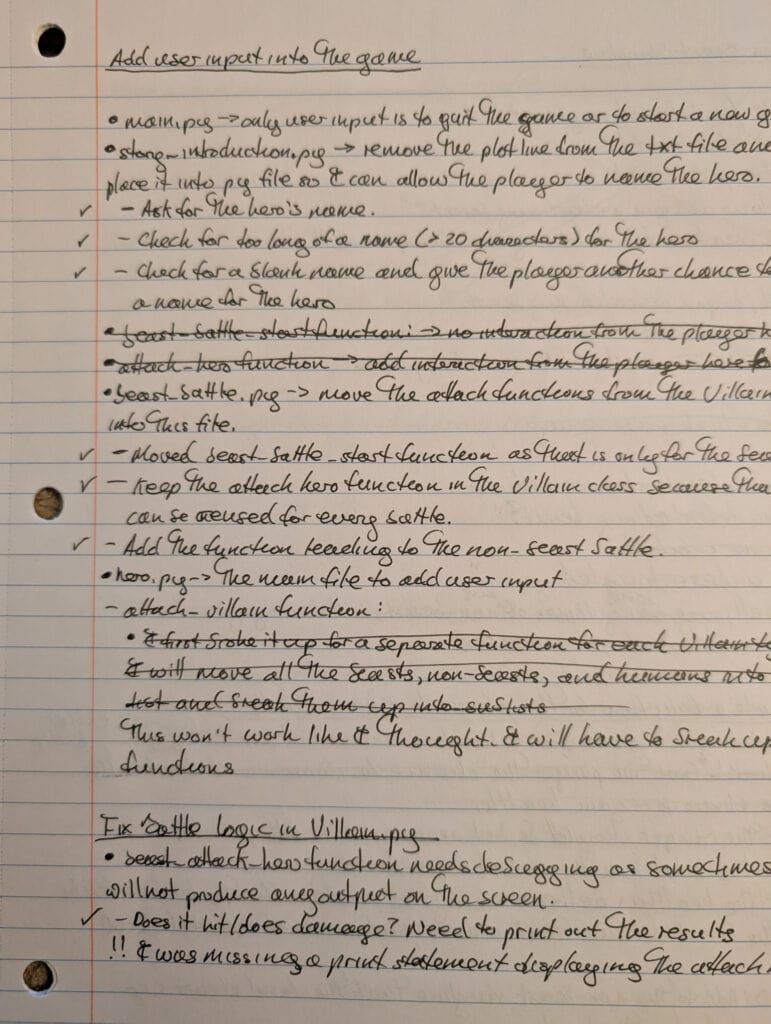 Add user input into the game
• main.py → only user input is to quit the game or to start a new g
• story_introduction.py → remove the plot line from the txt file and
place it into py file so I can allow the player to name the hero.
✓ - Ask for the hero's name.
✓ - Check for too long of a name (> 20 characters) for the hero
✓ - Check for a blank name and give the player another chance to
a name for the hero
• beast_battle_start function: → no interaction from the player
• attack_hero function → add interaction from the player here
• beast_battle.py → move the attack functions from the Villain
into this file.
✓ - Moved beast_battle_start function as that is only for the bea
✓ - Keep the attack hero function in the Villain class because tha
can be reused for every battle.
✓ - Add the function leading to the non-beast battle.
• hero.py → The main file to add user input
- attack_villain function:
• I first broke it up for a separate function for each Villain
I will move all the beasts, non-beasts, and humans into
list and break them up into sublists
This won't work like I thought. I will have to break up
functions
Fix Battle Logic in Villain.py
• beast_attack_hero function needs debugging as sometimes
will not produce any output on the screen.
✓ - Does it hit/does damage? Need to print out the results
!! I was missing a print statement displaying the attack